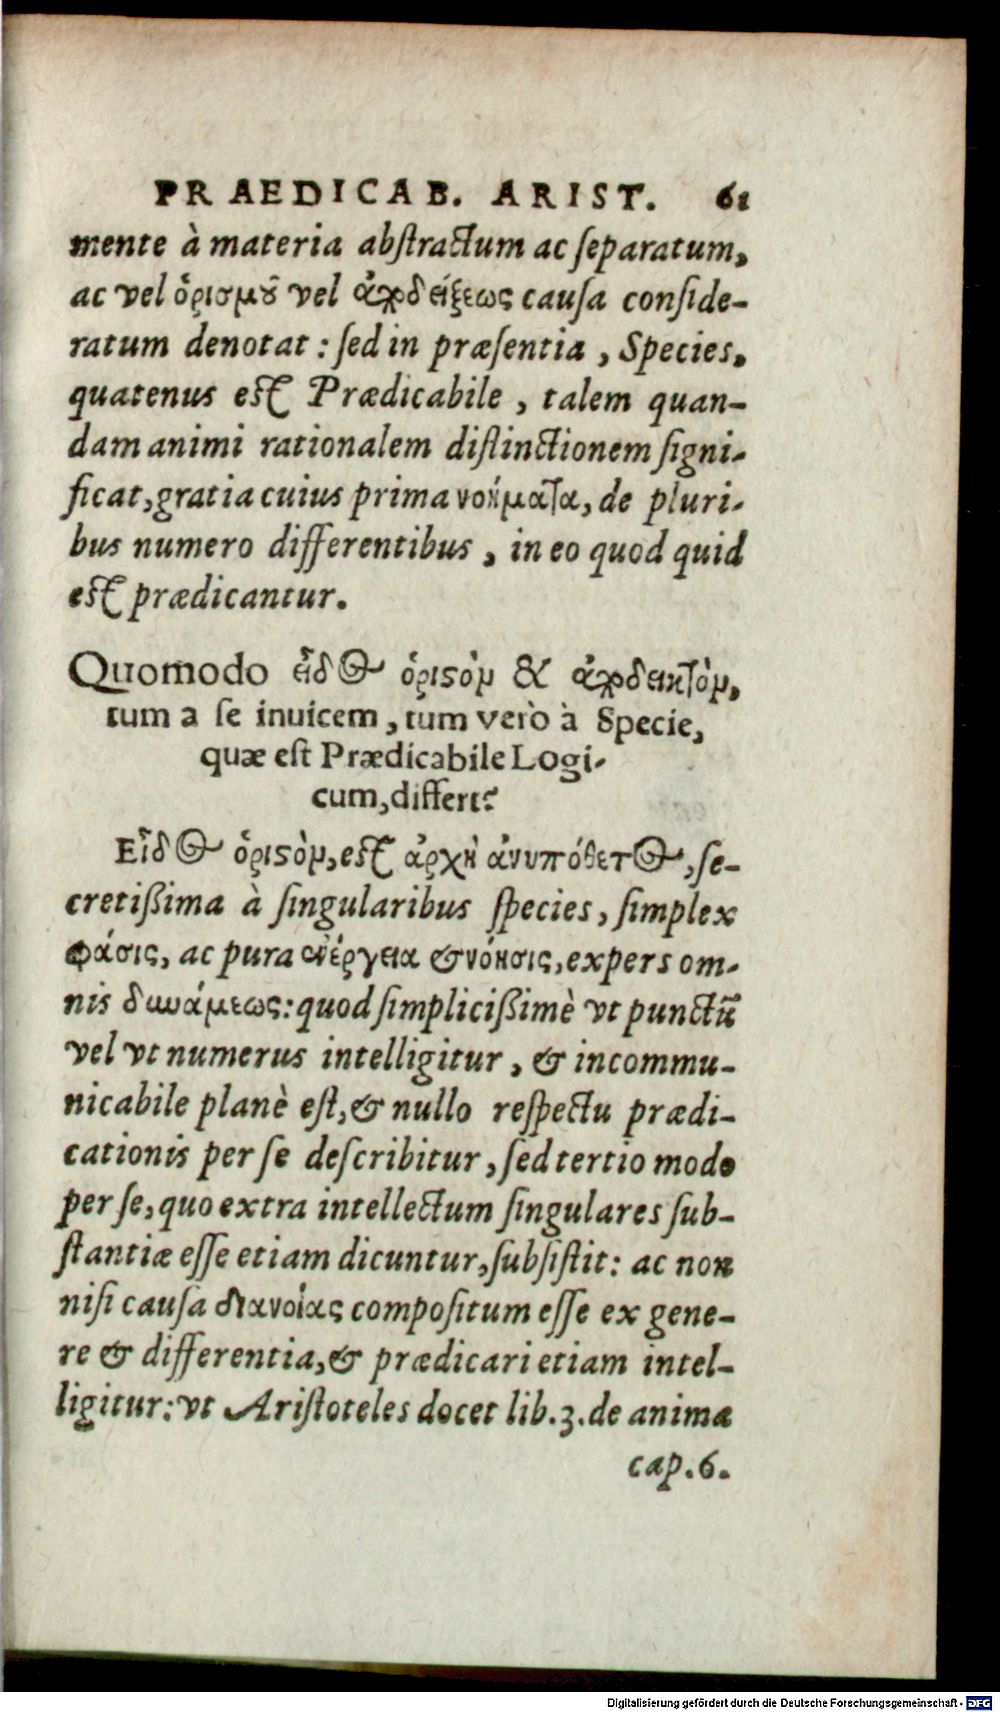 PRAEDICAB. ARIST. 61
mente à materia abſtractum ac ſeparatum,
ac vel ὁρισμοῦ vel ἀποδείξεως cauſa conſide-
ratum denotat: ſed in præſentia, Species,
quatenus eſt Prædicabile, talem quan-
dam animi rationalem diſtinctionem ſigni-
ficat, gratia cuius prima νοήματα, de pluri-
bus numero differentibus, in eo quod quid
eſt prædicantur.
Quomodo εἶδος ὁριστὸν & ἀποδεικτὸν,
tum a ſe inuicem, tum verò à Specie,
quæ eſt Prædicabile Logi-
cum, differt?
Εἶδος ὁριστὸν, eſt ἀρχὴ ἀνυπόθετος, ſe-
cretißima à ſingularibus ſpecies, ſimplex
φάσις, ac pura ἐνέργεια & νόησις, expers om-
nis δυνάμεως: quod ſimplicißimè vt punctũ
vel vt numerus intelligitur, & incommu-
nicabile planè eſt, & nullo reſpectu prædi-
cationis per ſe deſcribitur, ſed tertio modo
per ſe, quo extra intellectum ſingulares ſub-
ſtantiæ eſſe etiam dicuntur, ſubſiſtit: ac non
niſi cauſa διανοίας compoſitum eſſe ex gene-
re & differentia, & prædicari etiam intel-
ligitur: vt Ariſtoteles docet lib. 3. de anima
cap. 6.
Digitalisierung gefördert durch die Deutsche Forschungsgemeinschaft - DFG